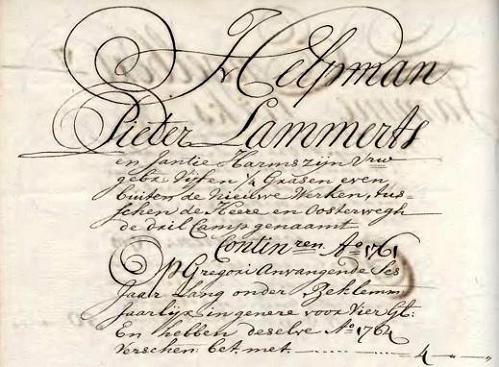 Helpman
Pieter Lammerts
en Jantie Harms zijn Vrw
gebr. Vijf en 1/4 Grasen even
buiten de Nieuwe Werken, tus-
schen de Heere en Oosterwegh
de dril Camp genaamt
Contin:ren. Ao. 1761
Op Gregorii Anvangende Ses
Jaar Lang onder Beklemm
Jaarlijx in genere voor Vier Gl:
En hebben deselve Ao. 1764
verschen: bet. met 4 " - "